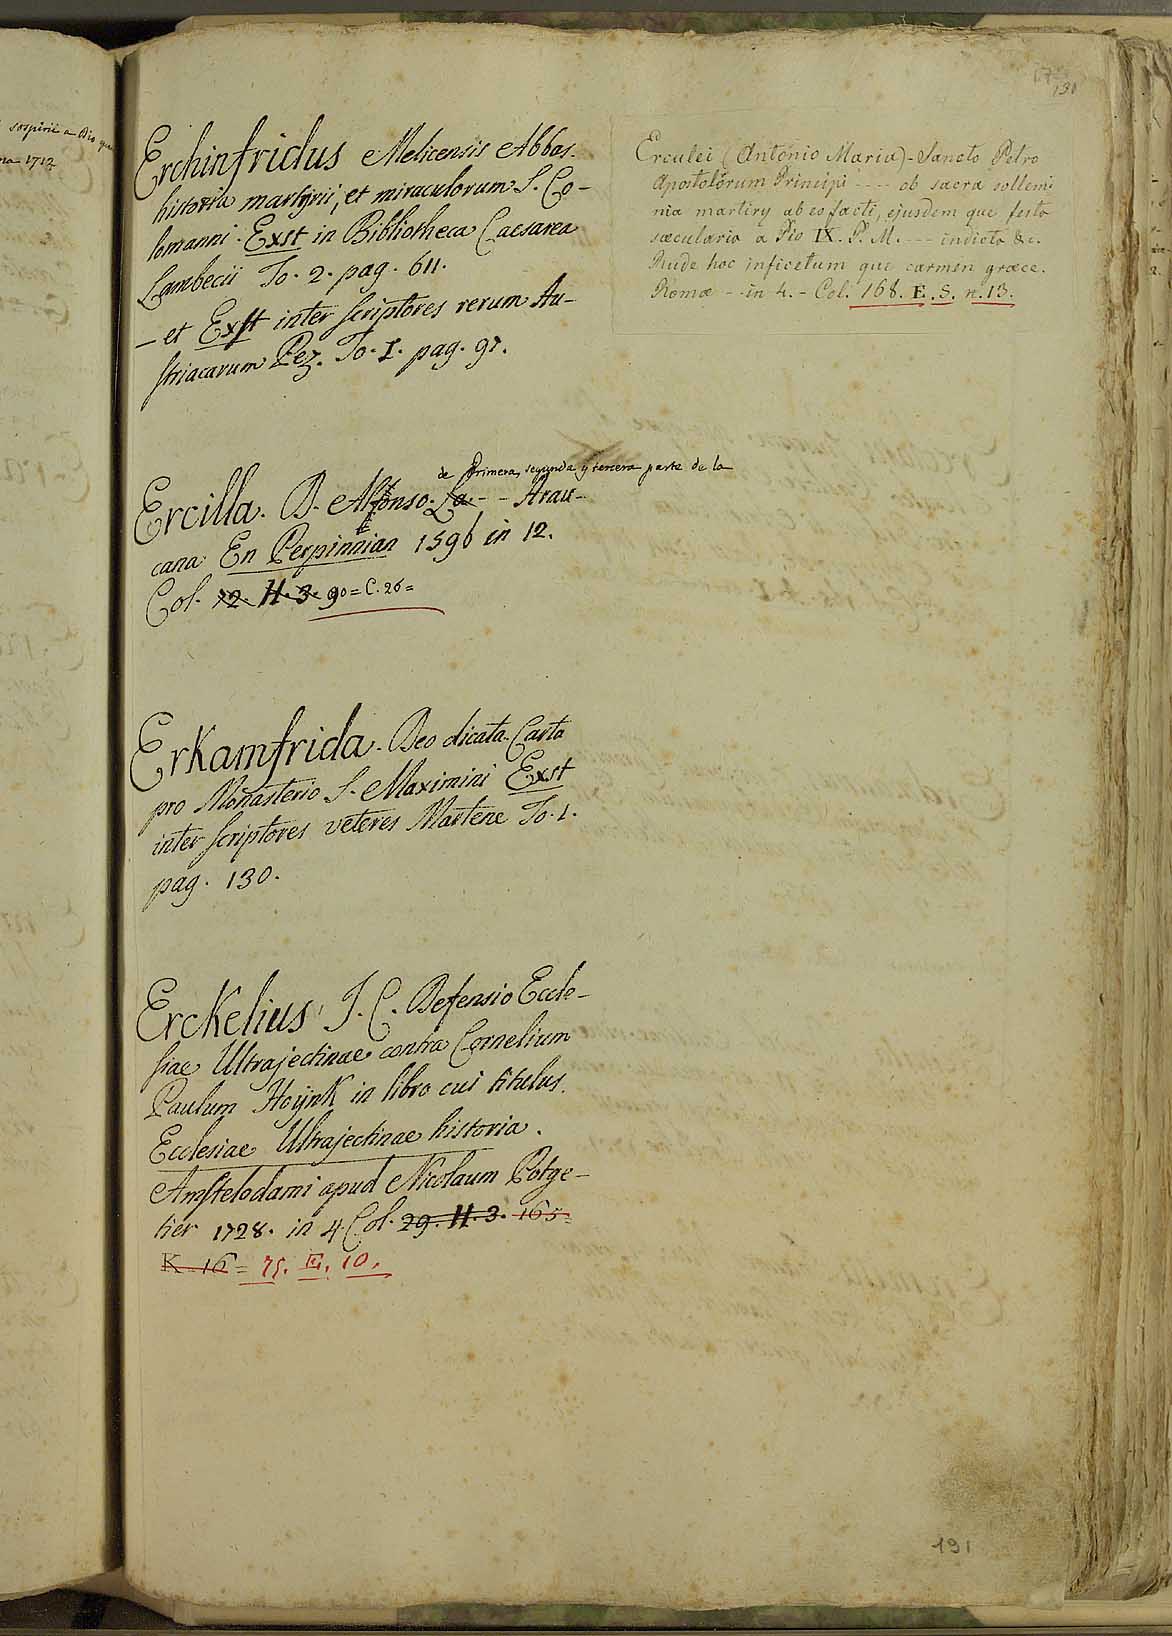 sospirii a Dio
na 1712
131
Erchinfridus Melicensis Abbas.
historia martyrii, et miraculorum S. Co-
lomanni. Exst in Bibliotheca Caesarea
Lambecii To. 2. pag. 611.
- et Exst inter scriptores rerum Au-
striacarum Pez. To. I. pag. 97.
de Primera, segunda y tercera parte de la
Ercilla. D. Alfonso. La - - Arau-
cana En Perpinnian 1596 in 12.
Col. 72. H. 3. 90 = C. 26 =
Erkamfrida. Deo dicata. Carta
pro Monasterio S. Maximini Exst
inter scriptores veteres Martene To. 1.
pag. 130.
Erckelius J. C. Defensio Eccle-
siae Ultrajectinae contra Cornelium
Paulum Hoijnk in libro cui titulus.
Ecclesiae Ultrajectinae historia.
Amstelodami apud Nicolaum Potge-
tier 1728. in 4. Col. 29. H. 3. 165=
K. 16 = 75. E. 10.
Erculei (Antonio Maria) - Sancto Petro
Apostolorum Principi - - - - ob sacra sollem-
nia martiry ab eo facti, ejusdem que festo
sæcularia a Pio IX. P. M. - - - indicta &c.
Rude hoc inficetum que carmen græce.
Romæ - - in 4. - Col. 168. E. S. n. 13.
191